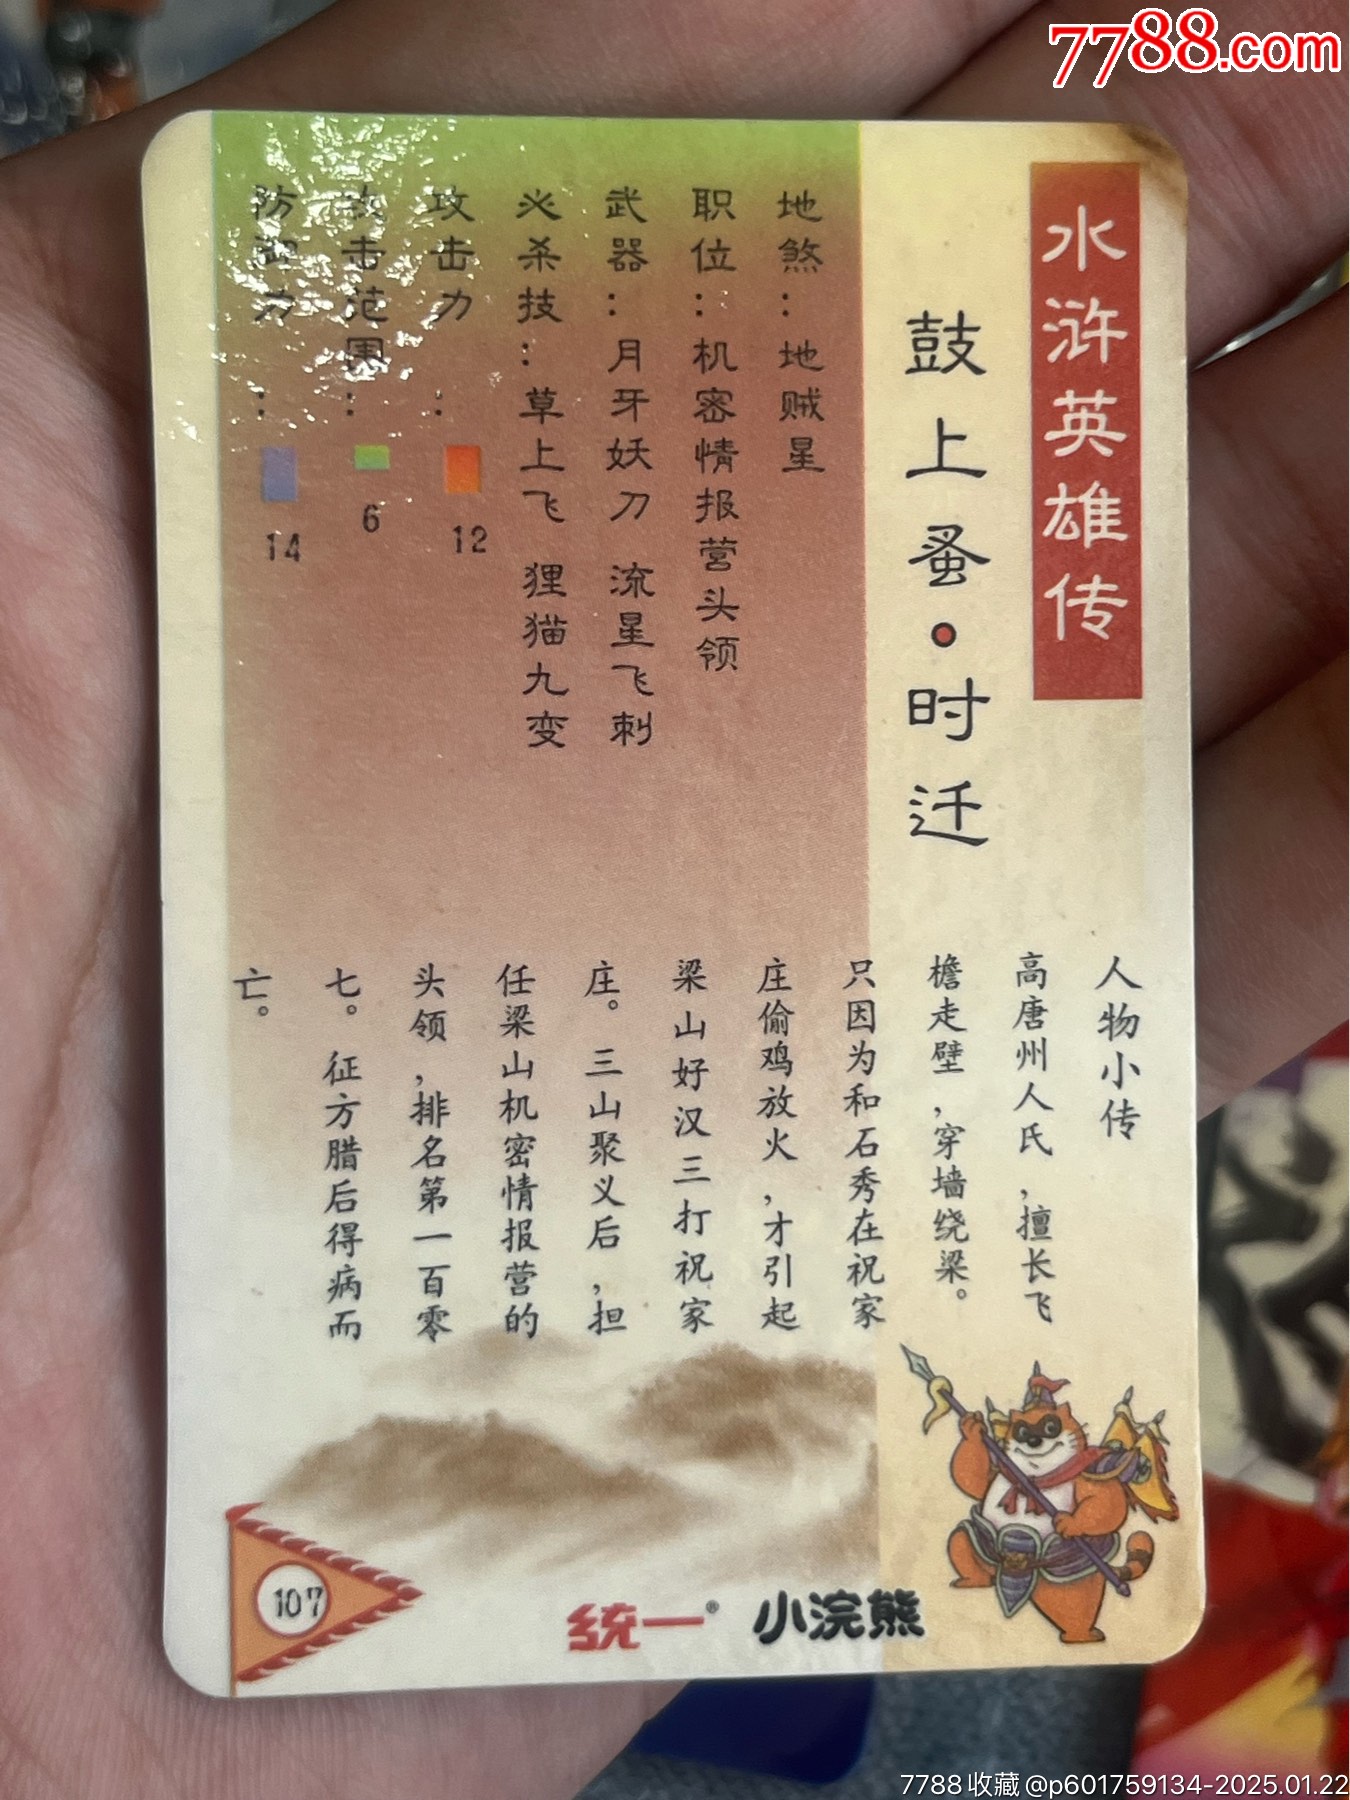 7788.com
水浒英雄传
鼓上蚤·时迁
地煞：地贼星
职位：机密情报营头领
武器：月牙妖刀 流星飞刺
必杀技：草上飞 狸猫九变
攻击力：12
攻击范围：6
防御力：14
人物小传
高唐州人氏，擅长飞
檐走壁，穿墙绕梁。
只因为和石秀在祝家
庄偷鸡放火，才引起
梁山好汉三打祝家
庄。三山聚义后，担
任梁山机密情报营的
头领，排名第一百零
七。征方腊后得病而
亡。
107
统一® 小浣熊
7788收藏@p601759134-2025.01.22